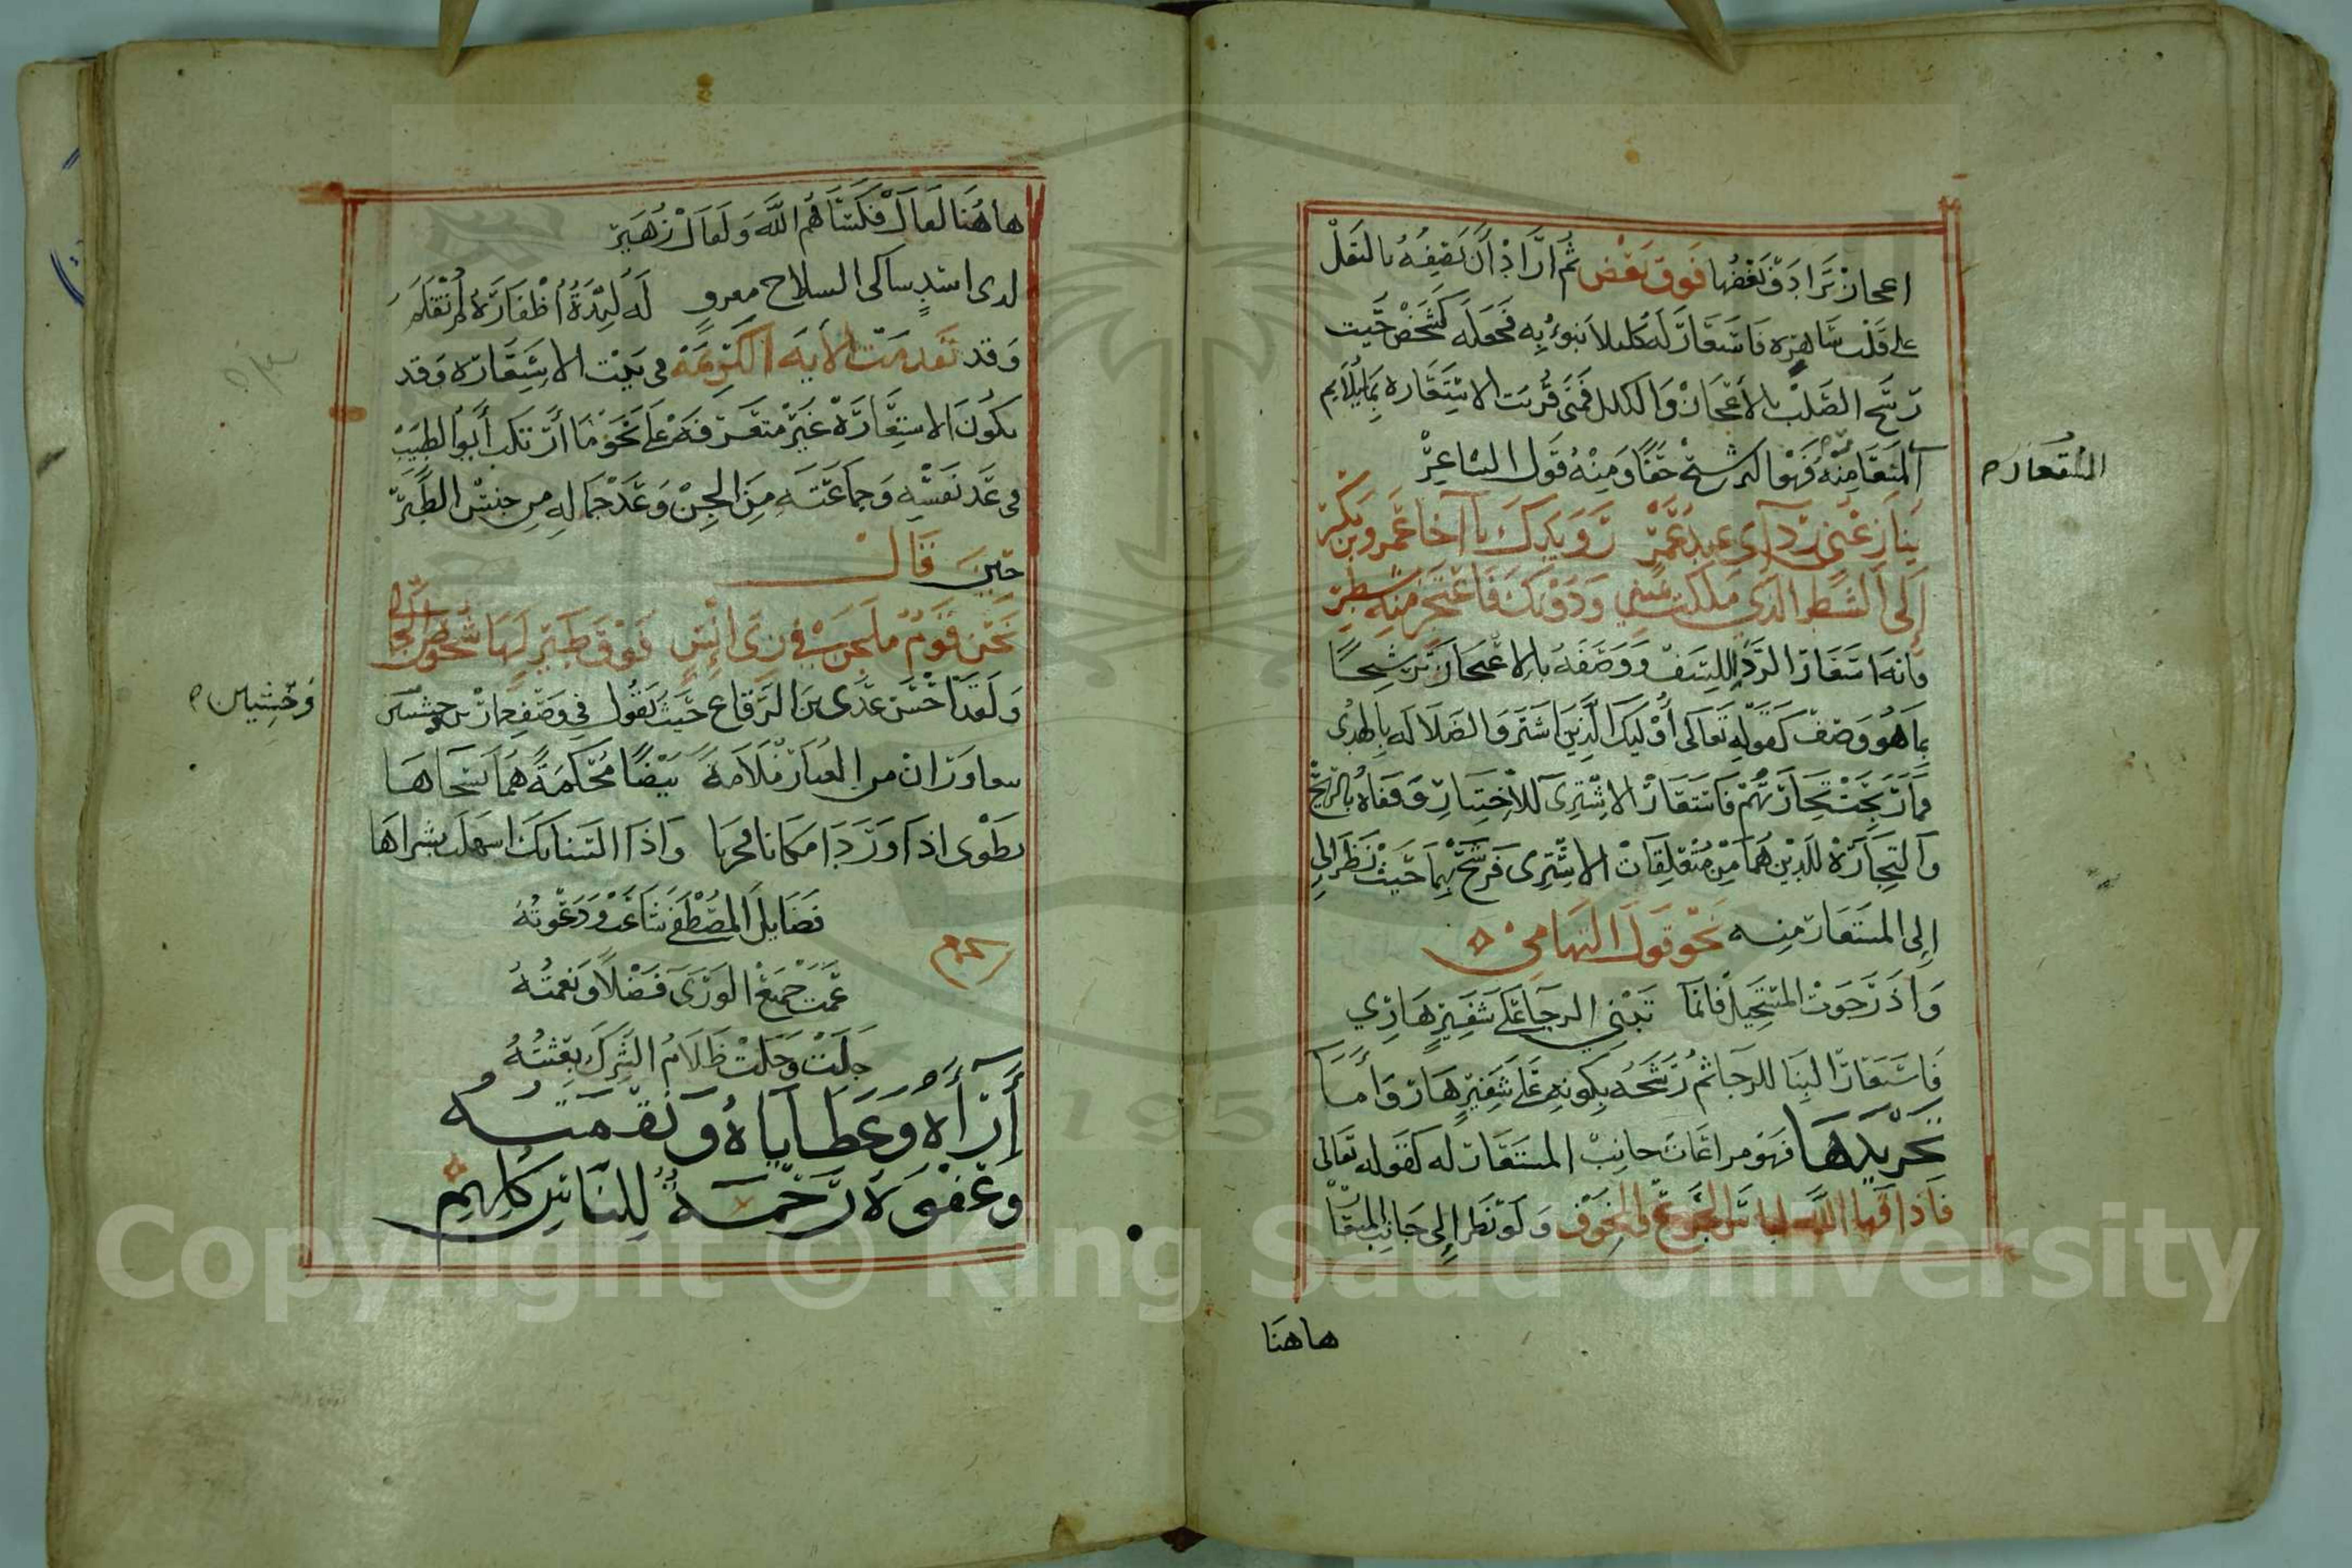 اعجاز يرادف بعضها فوق بعض ثم اراد ان يصفه بالثقل
على قلب ساهره فاستعار له كلكلا ينوء به فجعله كشخص حيث
رشح الصلب بالاعجاز والكلكل فمتى قرنت الاستعاره بما يلايم
المستعار منه فهو الترشيح حقا ومنه قول الشاعر
المستعار ه
ينازعني ردآي عبد عمرو رويدك يا اخا عمرو بن بكر
إلى الشطر الذي ملكت يميني ودونك فاعتجر منه بشطر
فانه استعار الردا للسيف ووصفه بالاعتجار ترشيحا
بما هو وصف كقوله تعالى أوليك الذين اشتروا الضلاله بالهدى
فما ربحت تجارتهم فاستعار الاشترى للاختيار وقفاه بالربح
والتجارة للذين هما من متعلقات الاشترى فرشح بهما حيث نظر الى
إلى المستعار منه نحو قول التهامي
واذ رجوت المستحيل فانما تبني الرجا على شفير هاري
فاستعار البنا للرجا ثم رشحه بكونه على شفير هار وأما
تجريدها فهو مراعات جانب المستعار له كقوله تعالى
فاذاقها الله لباس الجوع والخوف ولو نظر إلى جانب
هاهنا
هاهنا لقال فكساهم الله ولقال زهير
لدى اسد ساكى السلاح له لبدة أظفاره لم تقلم
وقد تقدمت الأية الكريمة في بحث الاستعاره وقد
يكون الاستعارة غير متعرفة على نحو ما ارتكب أبو الطيب
في عد نفسه وجماعته من الجن وعد جماله من جنس الطير
حين قال
نحن قوم ملجن في زى انس فوق طير لها شخوص الجمال
ولقد احسن عدى بن الرقاع حيث يقول في وصف حمارين
وحشيين ه
من الغبار ملاءة بيضا محكمة هما نسجاها
تطوى اذا وردا مكانا واذا السنابك اسهلت نشراها
فضايل المصطفى شاعت ودعوته
عمت جميع الورى فضلا ونعمته
جلت وجلت ظلام الشرك بعثته
أرآه وعطاياه ونقمته
وعفوه رحمة للناس كلهم
Copyright © King Saud University
1957